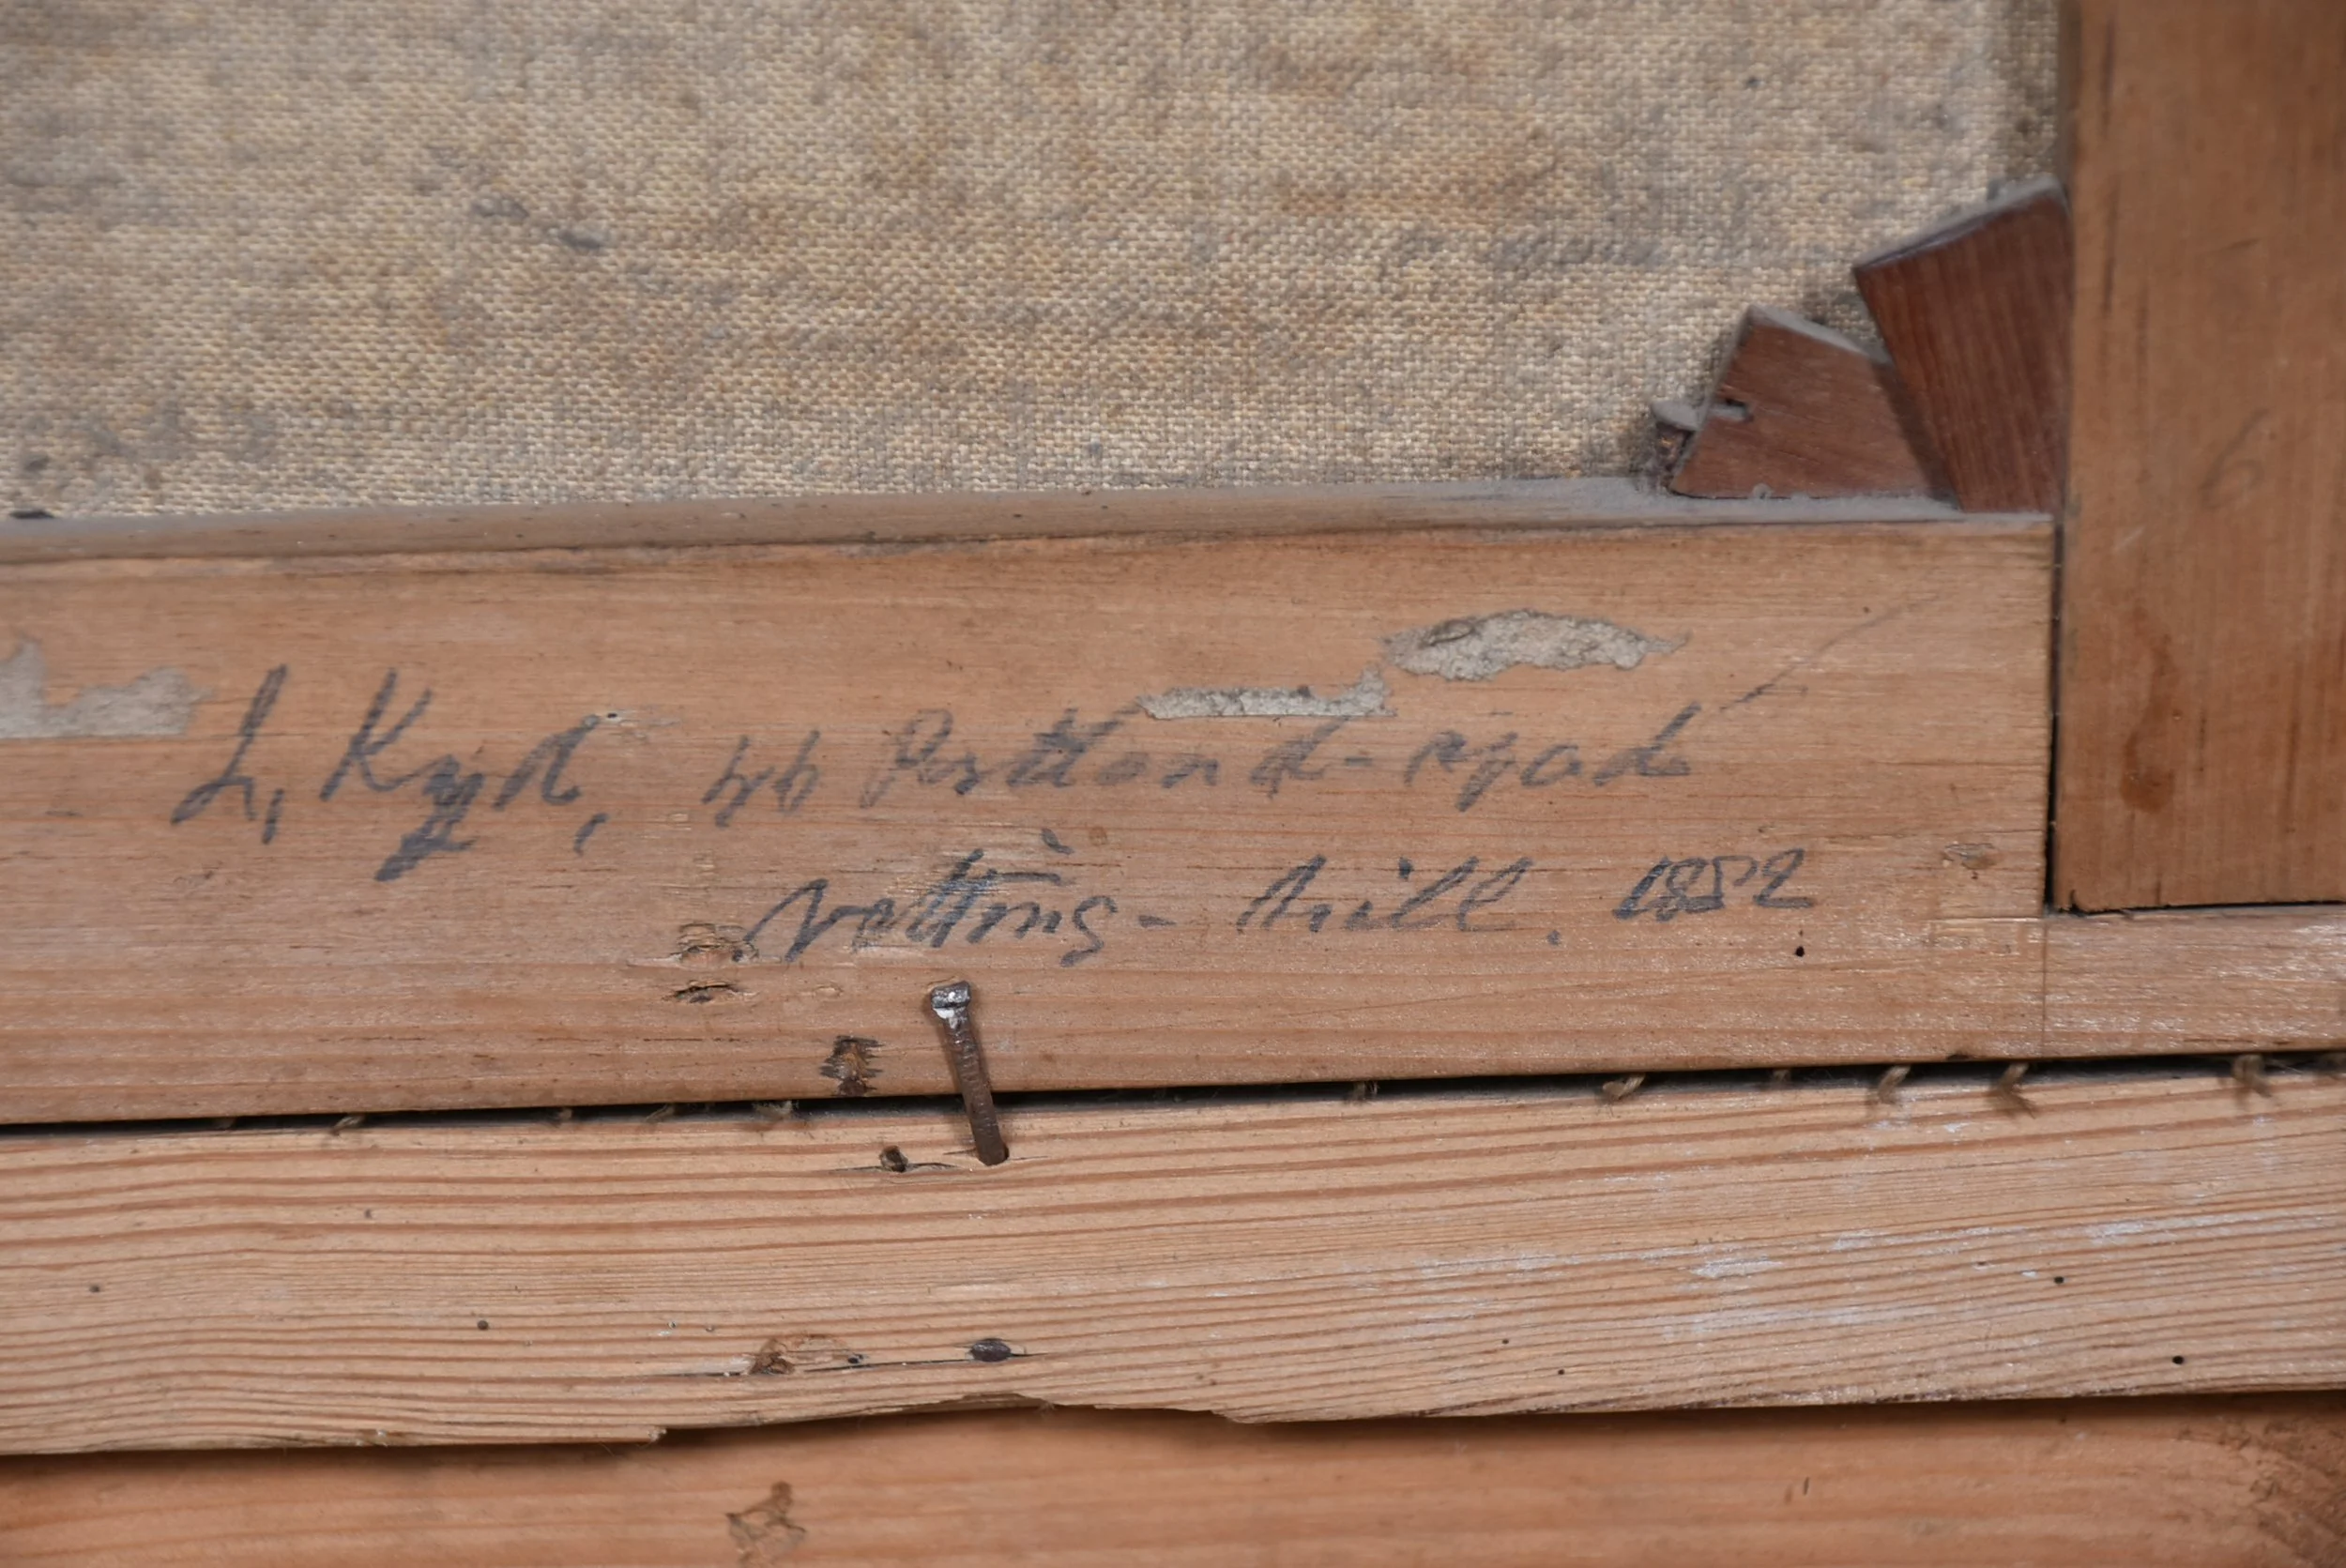 L, Kyd, 46 Portland-rjad
notting-hill. 1852
6